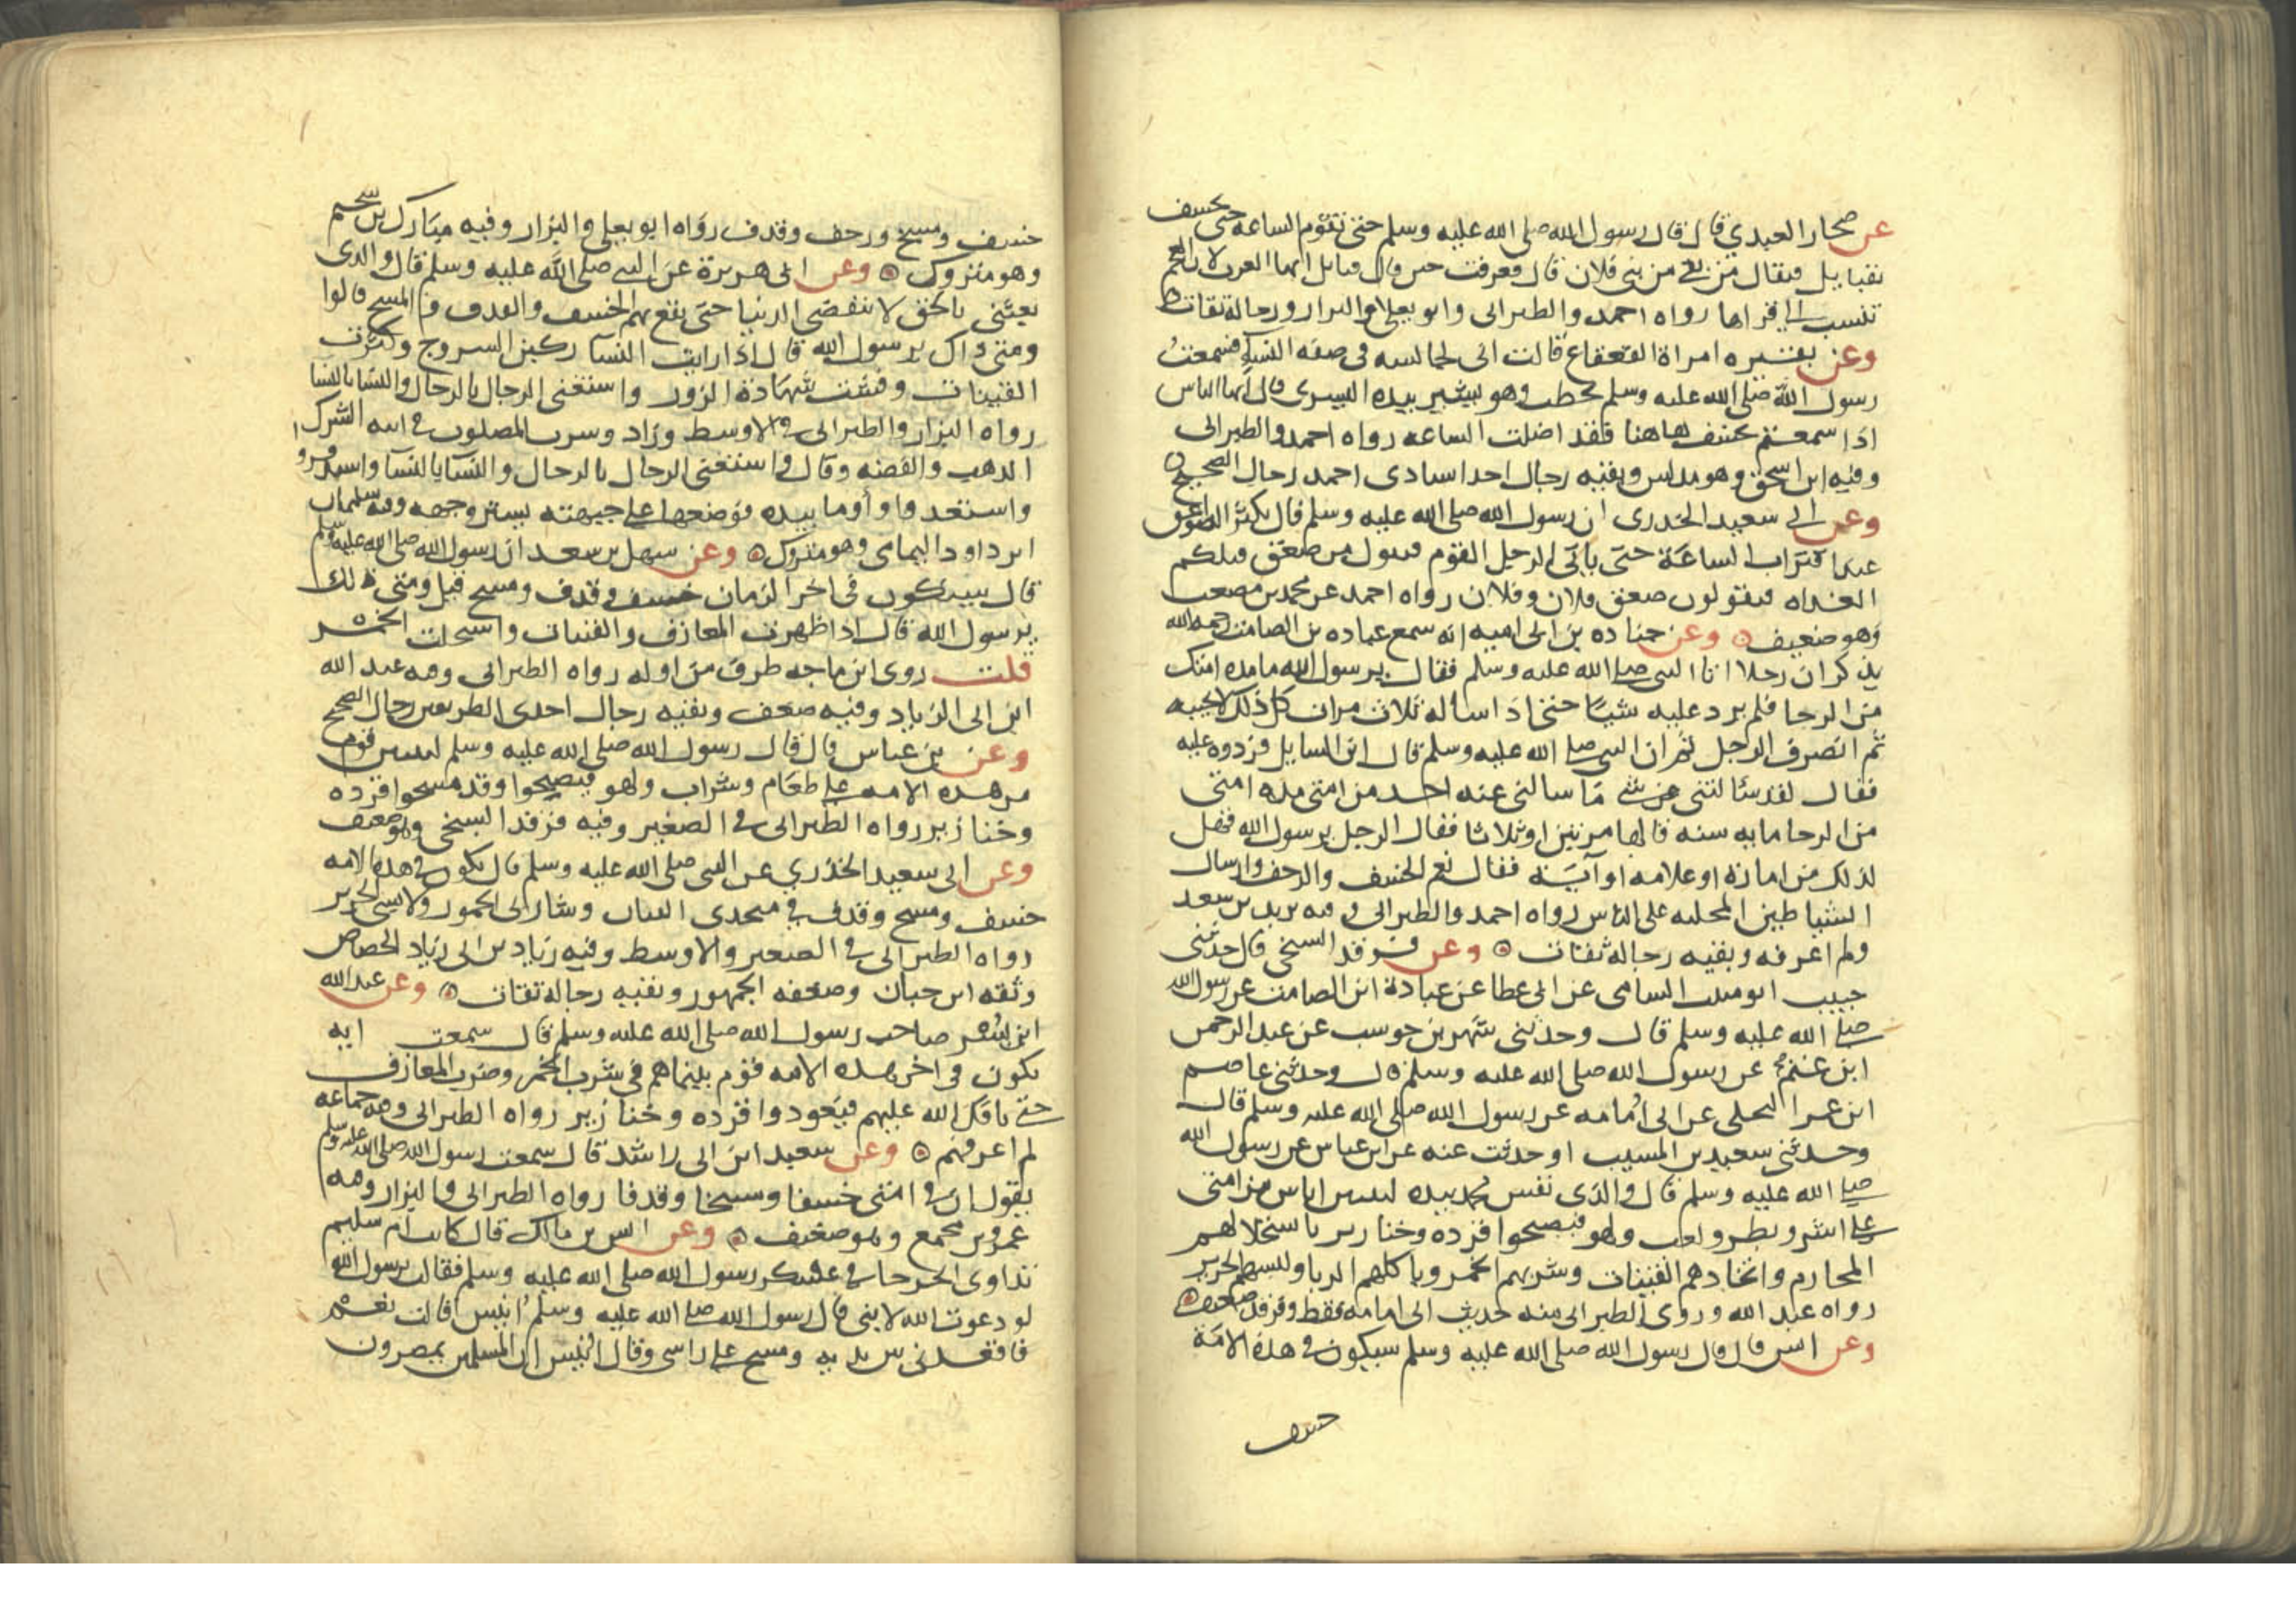 عن صحار العبدي قال قال رسول الله صلى الله عليه وسلم حتى تقوم الساعه حتى يخسف
بقبايل فيقال من بقى من بنى فلان قال فعرفت حين قال قبايل انها العرب لان العجم
تنسب الى قراها رواه احمد والطبرانى وابو يعلا والبزار ورجاله ثقات
وعن بقيره امراة القعقاع قالت انى لجالسه فى صفه النساء فسمعت
رسول الله صلى الله عليه وسلم يخطب وهو يشير بيده اليسرى قال ايها الناس
اذا سمعتم بخسف هاهنا فقد اضلت الساعه رواه احمد والطبرانى
وفيه ابن اسحق وهو مدلس وبقيه رجال احد اسنادى احمد رجال الصحيح
وعن ابى سعيد الخدرى ان رسول الله صلى الله عليه وسلم قال تكثر الصواعق
عند اقتراب الساعة حتى ياتى الرجل القوم فيقول من صعق قبلكم
الغداه فيقولون صعق فلان وفلان رواه احمد عن محمد بن مصعب
وهو ضعيف وعن جناده بن ابى اميه انه سمع عباده بن الصامت رحمه الله
يذكر ان رجلا اتا النبى صلى الله عليه وسلم فقال يرسول الله ما مده امتك
من الرخا فلم يرد عليه شيئا حتى اذا ساله ثلاث مرات كل ذلك لا يجيبه
ثم انصرف الرجل ثم ان النبى صلى الله عليه وسلم قال اين السايل فردوه عليه
فقال لقد سالتنى عن شى ما سالنى عنه احد من امتى مده امتى
من الرخا مايه سنه قالها مرتين او ثلاثا فقال الرجل يرسول الله فهل
لذلك من امارة او علامه او آية فقال نعم الخسف والرجف وارسال
الشياطين المجلبه على الناس رواه احمد والطبرانى وفيه يزيد بن سعد
ولم اعرفه وبقيه رجاله ثقات وعن فرقد السبخى قال حدثنى
حبيب ابو منيب الشامى عن ابى عطا عن عبادة ابن الصامت عن رسول الله
صلى الله عليه وسلم قال وحدثنى شهر بن حوشب عن عبد الرحمن
ابن غنم عن رسول الله صلى الله عليه وسلم قال وحدثنى عاصم
ابن عمرا البجلى عن ابى امامه عن رسول الله صلى الله عليه وسلم قال
وحدثنى سعيد بن المسيب او حدثت عنه عن ابن عباس عن رسول الله
صلى الله عليه وسلم قال والذى نفس محمد بيده ليبيتن اناس من امتى
على اشر وبطر ولعب ولهو فيصبحوا قرده وخنازير باستحلالهم
المحارم واتخاذهم القينات وشربهم الخمر وباكلهم الربا ولبسهم الحرير
رواه عبد الله وروى الطبرانى منه حديث ابى امامه فقط وفرقد ضعيف
وعن انس قال قال رسول الله صلى الله عليه وسلم سيكون فى هذه الامة
خسف
خسف ومسخ ورجف وقذف رواه ابو يعلى والبزار وفيه مبارك بن سحيم
وهو متروك وعن ابى هريرة عن النبى صلى الله عليه وسلم قال والذى
بعثنى بالحق لا تنقضى الدنيا حتى يقع بهم الخسف والقذف والمسخ قالوا
ومتى ذاك يرسول الله قال اذا رايت النسآ ركبن السروج وكثرت
القينات وفشت شهادة الزور واستغنى الرجال بالرجال والنسا بالنسا
رواه البزار والطبرانى فى الاوسط وزاد وشرب المصلون فى انيه الشرك
الذهب والفضه وقال واستغنى الرجال بالرجال والنسآ بالنسآ واستدفروا
واستعدوا وأوما بيده فوضعها على جبهته يستر وجهه وفيه سليمان
ابن داود اليمامى وهو متروك وعن سهل بن سعد ان رسول الله صلى الله عليه وسلم
قال سيكون فى اخر الزمان خسف وقذف ومسخ قيل ومتى ذلك
يرسول الله قال اذا ظهرت المعازف والقينات واستحلت الخمر
قلت روى ابن ماجه طرف من اوله رواه الطبرانى وفيه عبد الله
ابن ابى الزناد وفيه ضعف وبقيه رجال احدى الطريقين رجال الصحيح
وعن بن عباس قال قال رسول الله صلى الله عليه وسلم ليبيتن قوم
من هذه الامه على طعام وشراب ولهو فيصبحوا وقد مسخوا قرده
وخنازير رواه الطبرانى فى الصغير وفيه فرقد السبخى وهو ضعيف
وعن ابى سعيد الخدري عن النبى صلى الله عليه وسلم قال يكون فى هذه الامه
خسف ومسخ وقذف فى متخذى القيان وشاربى الخمور ولابسى الحرير
رواه الطبرانى فى الصغير والاوسط وفيه زياد بن ابى زياد الجصاص
وثقه ابن حبان وضعفه الجمهور وبقيه رجاله ثقات وعن عبد الله
ابن بشر صاحب رسول الله صلى الله عليه وسلم قال سمعت انه
يكون فى اخر هذه الامه قوم بينما هم فى شرب الخمر وضرب المعازف
حتى يافك الله عليهم فيعودوا قرده وخنازير رواه الطبرانى وفيه جماعه
لم اعرفهم وعن سعيد ابن ابى راشد قال سمعت رسول الله صلى الله عليه وسلم
يقول ان فى امتى خسفا ومسخا وقذفا رواه الطبرانى والبزار وفيه
عمرو بن مجمع وهو ضعيف وعن انس بن مالك قال كانت ام سليم
تداوى الجرحا فى عسكر رسول الله صلى الله عليه وسلم فقالت يرسول الله
لو دعوت الله لابنى قال رسول الله صلى الله عليه وسلم انيس قالت نعم
فاقعدنى بين يديه ومسح على راسى وقال انيس ان المسلمين يمصرون